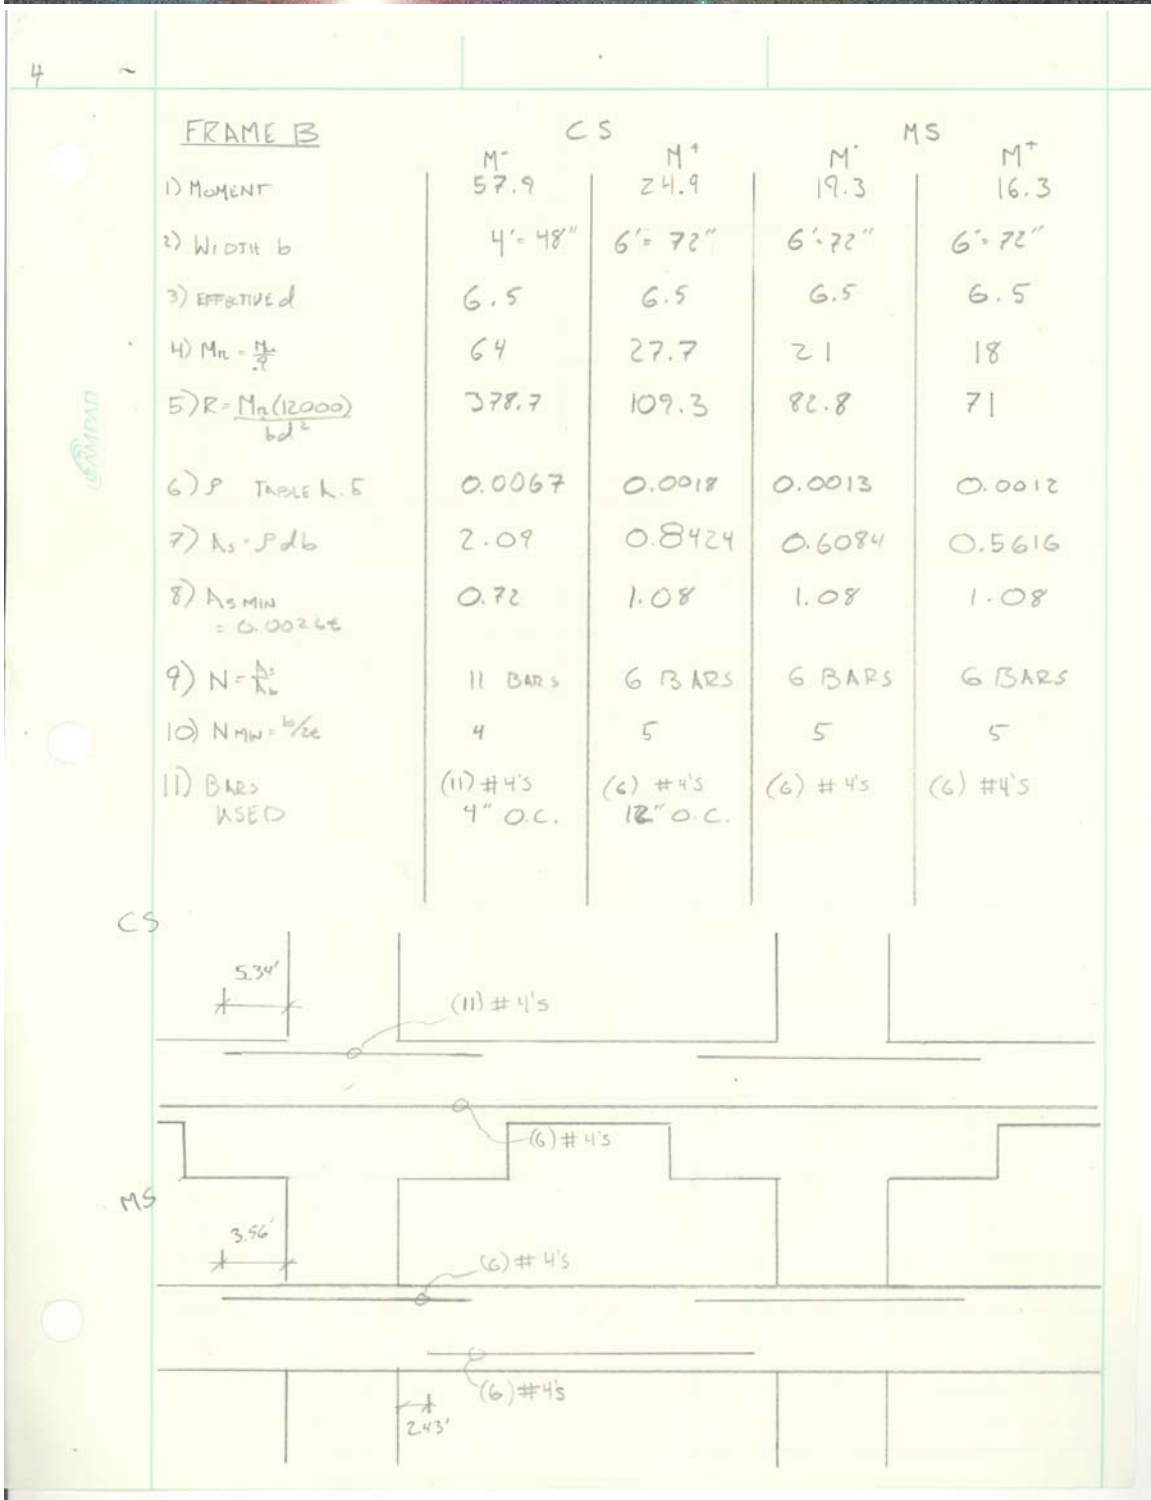 4 ~
FRAME B CS MS
M⁻ M⁺ M⁻ M⁺
1) MOMENT 57.9 24.9 19.3 16.3
2) WIDTH b 4' = 48" 6' = 72" 6' = 72" 6' = 72"
3) EFFECTIVE d 6.5 6.5 6.5 6.5
4) Mn = Mu/.9 64 27.7 21 18
5) R = Mn(12000)/bd² 378.7 109.3 82.8 71
6) ρ TABLE A.5 0.0067 0.0018 0.0013 0.0012
7) As = ρdb 2.09 0.8424 0.6084 0.5616
8) As MIN 0.72 1.08 1.08 1.08
= 0.002bt
9) N = As/Ab 11 BARS 6 BARS 6 BARS 6 BARS
10) N MIN = b/2t 4 5 5 5
11) BARS (11) #4's (6) #4's (6) #4's (6) #4's
USED 4" O.C. 12" O.C.
CS
5.34'
(11) #4's
(6) #4's
MS
3.56'
(6) #4's
(6) #4's
2.43'
AMPAD